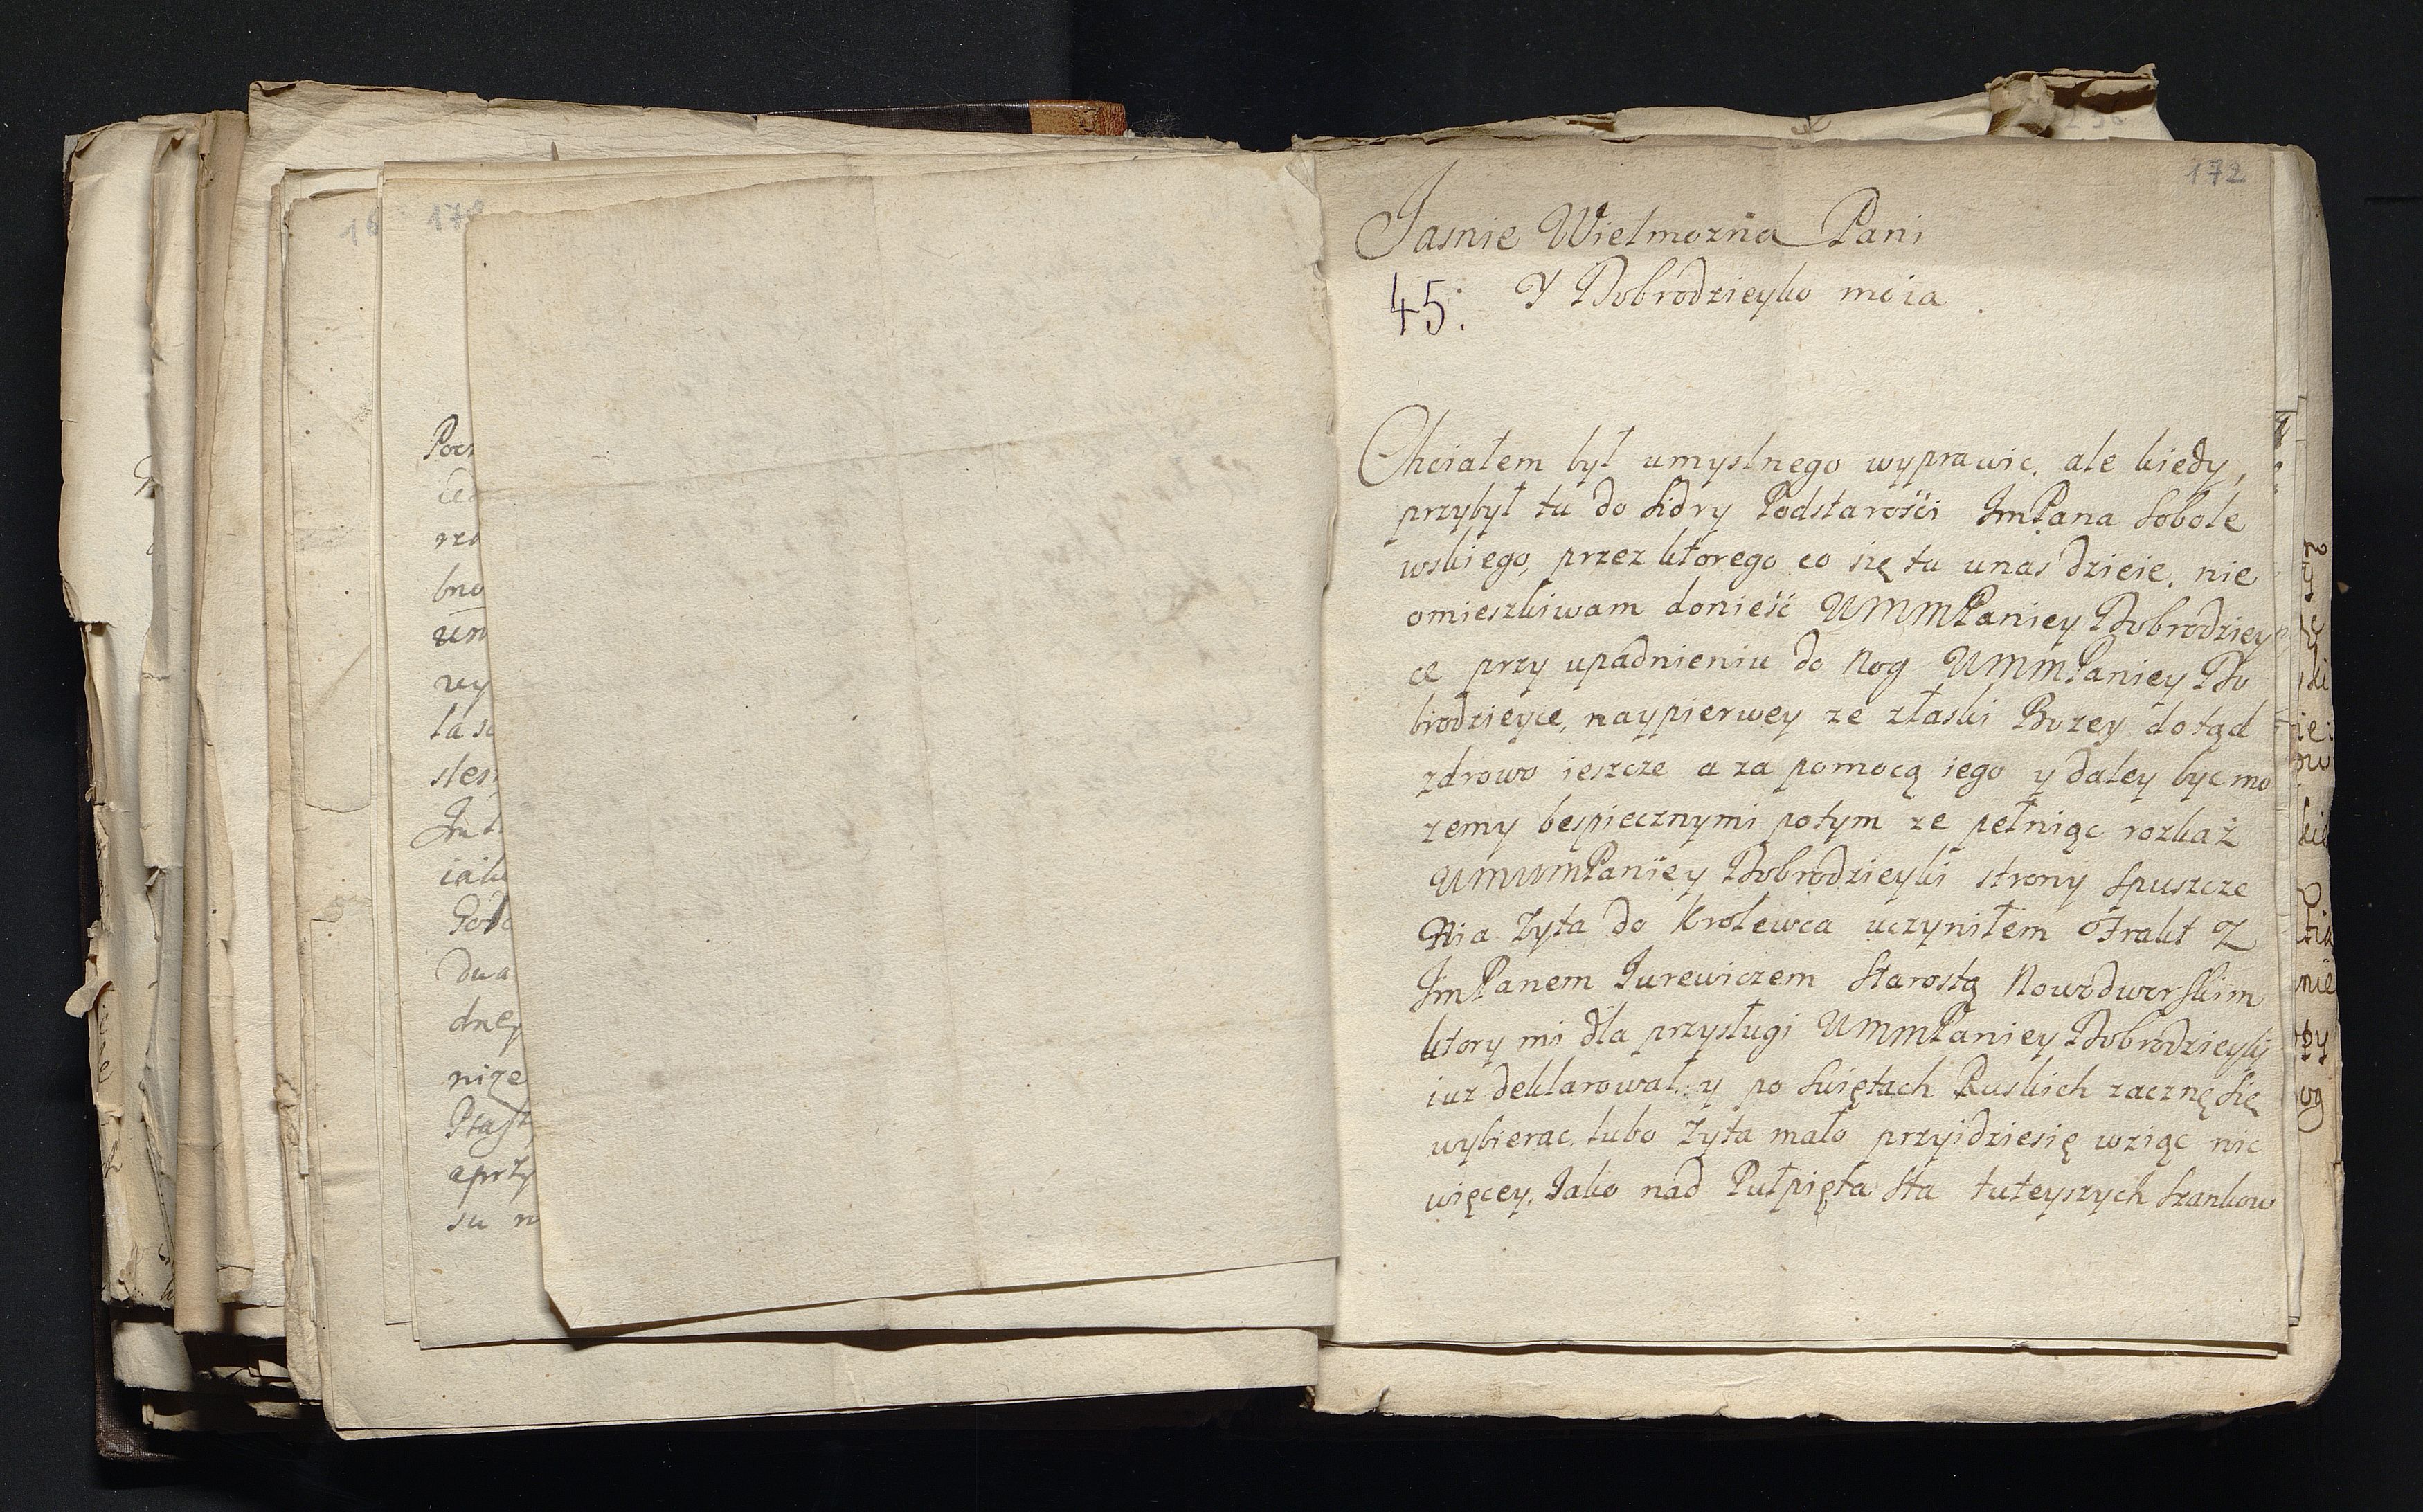 172
Jasnie Wielmozna Pani
45. Y Dobrodzieyko moia
Chciałem był umyslnego wyprawic, ale kiedy,
przybył tu do Lidry Podstarości ImPana Sobole
wskiego, przez ktorego co się tu unas dzieie, nie
omieszkiwam donieść UMMPaniey Dobrodziey
ce przy upadnieniu do Nog UMMPaniey Do
brodzieyce, naypierwey ze złaski Bozey dotąd
zdrowo ieszcze a za pomocą iego y daley byc mo
zemy bespiecznymi potym ze pełniąc rozkaż
UMMPaniey Dobrodzieyki strony Spuszcze
Nia Zyta do Krolewca uczyniłem Trakt Z
ImPanem Jurewiczem Starostą Nowodworskim
ktory mi dla przysługi UMMPaniey Dobrodzieyki
iuz deklarował: y po Swiętach Ruskich zacznę Się
wybierac, lubo Zyta mało przyidziesię wziąc nic
więcey, Jako nad Pułpięta Sta tuteyszych Szankow
170
Pocz
rza
bno
um
wy
la sc
sles
iak
dua
dney
nize
aprzy
su n